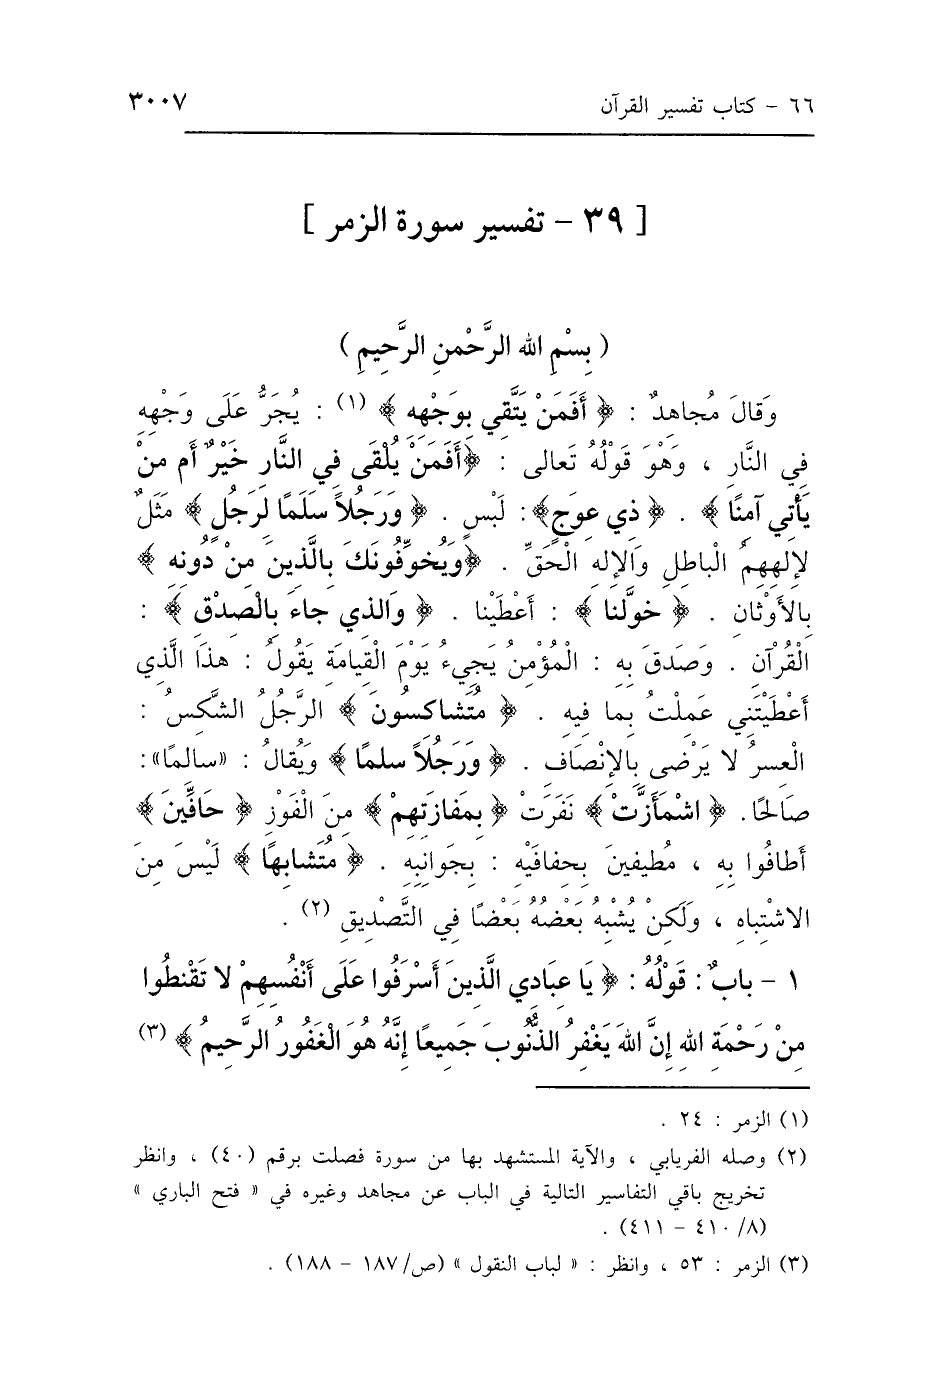 ٦٦ - كتاب تفسير القرآن ٣٠٠٧
[ ٣٩ - تفسير سورة الزمر ]
( بِسْمِ اللهِ الرَّحْمنِ الرَّحِيمِ )
وَقالَ مُجاهِدٌ : ﴿ أَفَمَنْ يَتَّقِي بِوَجْهِهِ ﴾ (١) : يُجَرُّ عَلَى وَجْهِهِ
فِي النَّارِ ، وَهْوَ قَوْلُهُ تَعالى : ﴿أَفَمَنْ يُلْقَى فِي النَّارِ خَيْرٌ أَم مَنْ
يَأْتِي آمِنًا ﴾ . ﴿ ذِي عِوَجٍ﴾: لَبْسٍ . ﴿ وَرَجُلاً سَلَمًا لِرَجُلٍ ﴾ مَثَلٌ
لإِلهِهِمُ الْباطِلِ وَالإِلهِ الْحَقِّ . ﴿وَيُخَوِّفُونَكَ بِالَّذِينَ مِنْ دُونِهِ ﴾
بِالأَوْثانِ . ﴿ خوَّلْنا ﴾ : أَعْطَيْنا . ﴿ وَالَّذِي جاءَ بِالْصِدْقِ ﴾ :
الْقُرْآنِ . وَصَدَقَ بِهِ : الْمُؤْمِنُ يَجِيءُ يَوْمَ الْقِيامَةِ يَقُولُ : هذَا الَّذِي
أَعْطَيْتَنِي عَمِلْتُ بِما فِيهِ . ﴿ مُتَشاكِسُونَ ﴾ الرَّجُلُ الشَّكِسُ :
الْعَسِرُ لا يَرْضى بِالإِنْصَافِ . ﴿ وَرَجُلاً سلمًا ﴾ وَيُقالُ : «سالِمًا»:
صَالِحًا. ﴿ اشْمَأَزَّتْ ﴾ نَفَرَتْ ﴿ بِمَفازَتِهِمْ ﴾ مِنَ الْفَوْزِ ﴿ حَافِّينَ ﴾
أَطافُوا بِهِ ، مُطِيفينَ بِحفافَيْهِ : بِجَوانِبِهِ . ﴿ مُتَشابِهًا ﴾ لَيْسَ مِنَ
الاشْتِباهِ ، وَلَكِنْ يُشْبِهُ بَعْضُهُ بَعْضًا فِي التَّصْدِيقِ (٢) .
١ - بابٌ : قَوْلُهُ : ﴿ يَا عِبَادِي الَّذِينَ أَسْرَفُوا عَلَى أَنْفُسِهِمْ لا تَقْنطُوا
مِنْ رَحْمَةِ اللهِ إِنَّ اللهَ يَغْفِرُ الذُّنُوبَ جَمِيعًا إِنَّهُ هُوَ الْغَفُورُ الرَّحِيمُ ﴾ (٣)
(١) الزمر : ٢٤ .
(٢) وصله الفريابي ، والآية المستشهد بها من سورة فصلت برقم (٤٠) ، وانظر
تخريج باقي التفاسير التالية في الباب عن مجاهد وغيره في « فتح الباري »
(٨/ ٤١٠ - ٤١١) .
(٣) الزمر : ٥٣ ، وانظر : « لباب النقول » (ص/ ١٨٧ - ١٨٨) .